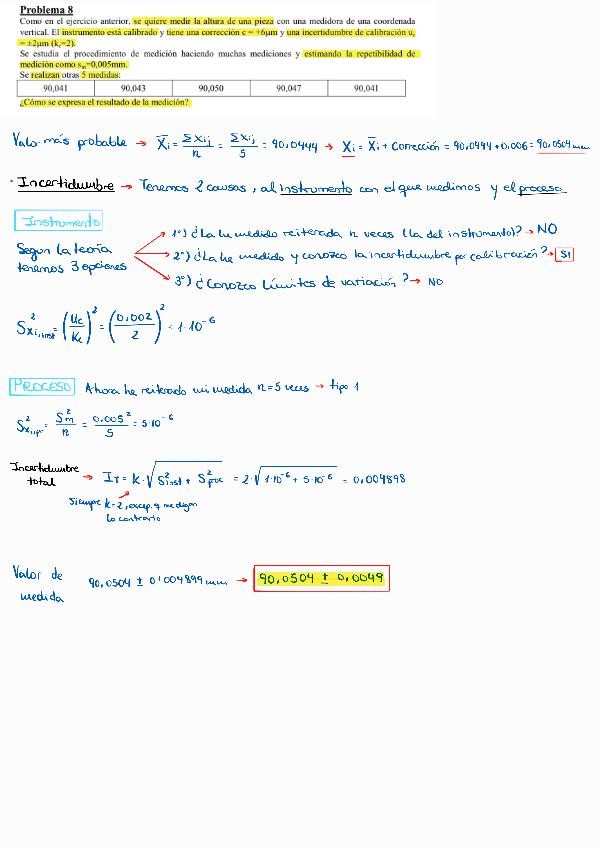 Problema 8
Como en el ejercicio anterior, se quiere medir la altura de una pieza con una medidora de una coordenada
vertical. El instrumento está calibrado y tiene una corrección c = +6μm y una incertidumbre de calibración uc
= ±2μm (kc=2).
Se estudia el procedimiento de medición haciendo muchas mediciones y estimando la repetibilidad de
medición como sm=0,005mm.
Se realizan otras 5 medidas:
90,041 90,043 90,050 90,047 90,041
¿Cómo se expresa el resultado de la medición?
Valor más probable → X̄i = ΣXij / n = ΣXij / 5 = 90,0444 → Xi = X̄i + corrección = 90,0444 + 0,006 = 90,0504 mm
• Incertidumbre → Tenemos 2 causas, al instrumento con el que medimos y el proceso
Instrumento
Segun la teoría tenemos 3 opciones
1º) ¿La he medido reiterada n veces (la del instrumento)? → NO
2º) ¿La he medido y conozco la incertidumbre por calibración? → SI
3º) ¿Conozco límites de variación? → NO
S²xi,inst = (uc / kc)² = (0,002 / 2)² = 1·10⁻⁶
PROCESO Ahora he reiterado mi medida n=5 veces → tipo 1
S²xi,pr = S²m / n = 0,005² / 5 = 5·10⁻⁶
Incertidumbre total → IT = k·√(S²inst + S²proc) = 2·√(1·10⁻⁶ + 5·10⁻⁶) = 0,004898
Siempre k=2, excep. q me digan
lo contrario
Valor de medida 90,0504 ± 0'004899 mm → 90,0504 ± 0,0049